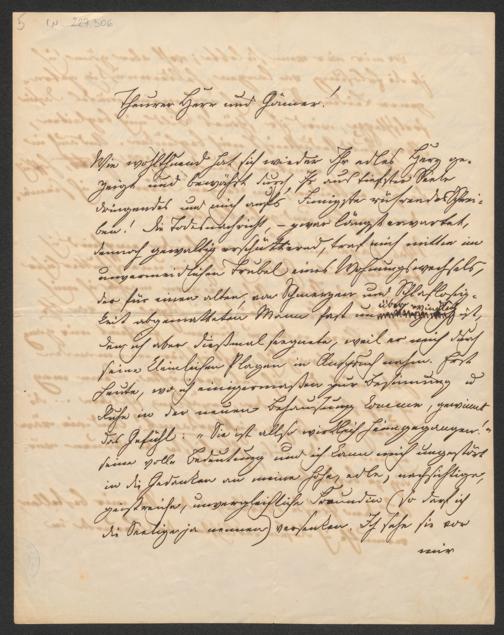 5 IN 227.506
Theurer Herr und Gönner!
Wie wohlthuend hat sich wieder Ihr edles Herz ge-
zeigt und bewährt durch Ihr aus tiefster Seele
dringendes und mich aufs Innigste rührendes Schrei-
ben! Die Todesnachricht, zwar längst erwartet,
dennoch gewaltig erschütternd, traf mich mitten im
unvermeidlichen Trubel eines Wohnungswechsels,
der für einen alten, von Schmerzen und Schlaflosig-
keit abgematteten Mann fast unüberwindlich ist,
den ich aber diesmal segnete, weil er mich durch
seine kleinlichen Plagen in Anspruch nahm. Erst
heute, wo ich einigermaßen zur Besinnung u
Ruhe in der neuen Behausung komme, gewinnt
das Gefühl: „Sie ist also wirklich heimgegangen!"
seine volle Bedeutung und ich kann mich ungestört
in die Gedanken an meine hohe, edle, nachsichtige,
geistreiche, unvergleichliche Freundin (so darf ich
die Seelige ja nennen) versenken. Ich sehe sie vor
mir